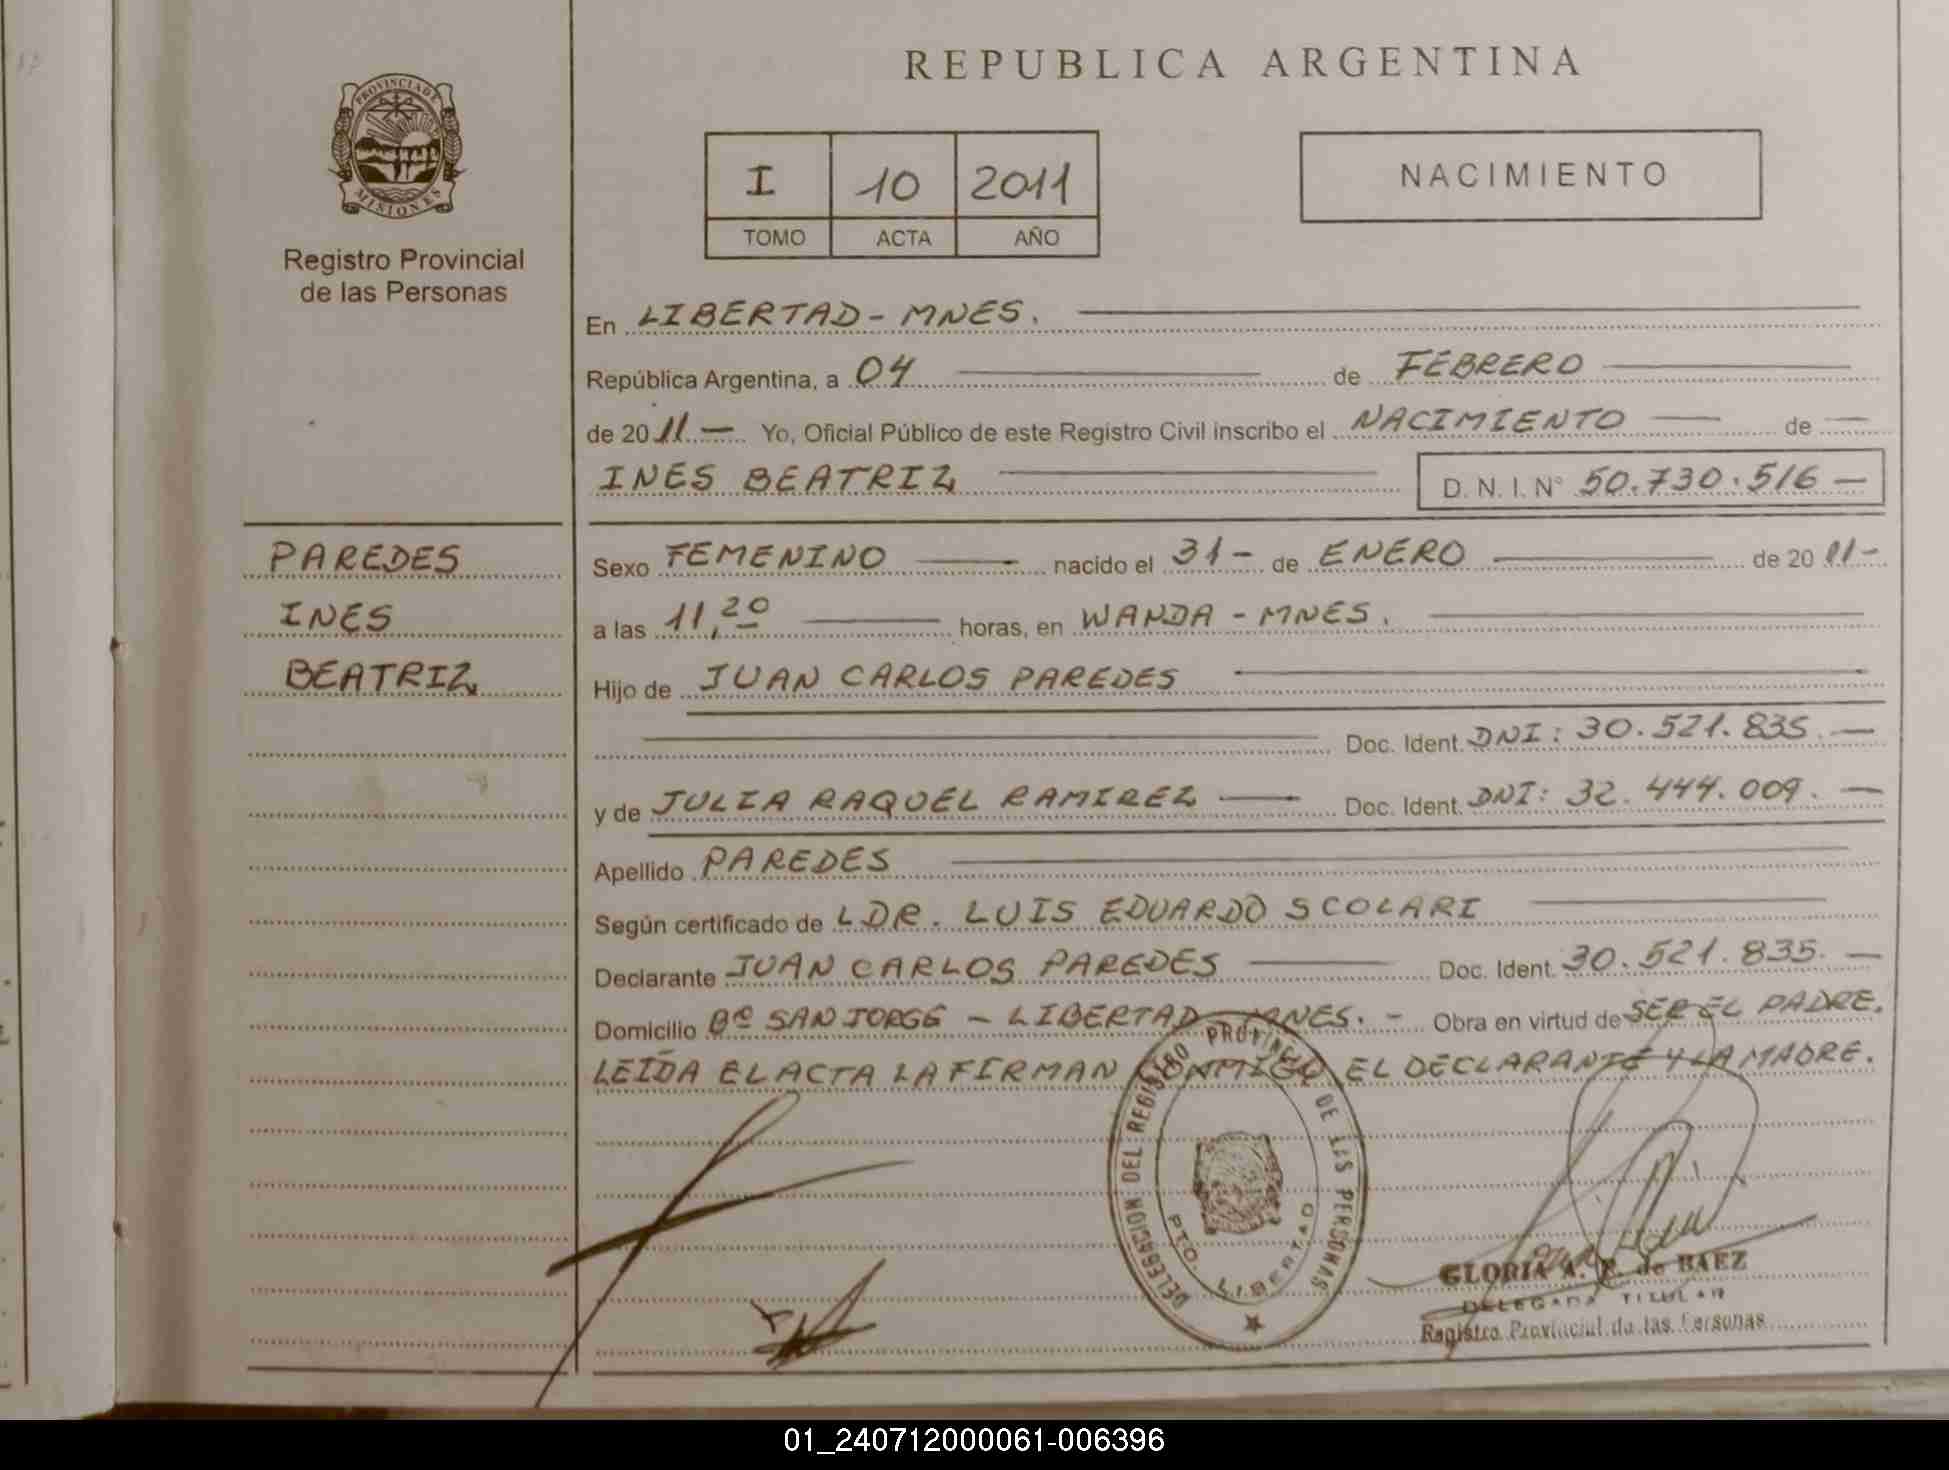 REPUBLICA ARGENTINA
PROVINCIA DE
MISIONES
Registro Provincial
de las Personas
I 10 2011
TOMO ACTA AÑO
NACIMIENTO
En LIBERTAD - MNES.
República Argentina, a 04 de FEBRERO
de 2011 - Yo, Oficial Público de este Registro Civil inscribo el NACIMIENTO de
INES BEATRIZ D. N. I. N° 50.730.516 -
PAREDES
INES
BEATRIZ
Sexo FEMENINO nacido el 31 - de ENERO de 2011 -
a las 11,20 horas, en WANDA - MNES.
Hijo de JUAN CARLOS PAREDES
Doc. Ident. DNI: 30.521.835. -
y de JULIA RAQUEL RAMIREZ Doc. Ident. DNI: 32.444.009. -
Apellido PAREDES
Según certificado de LDR. LUIS EDUARDO SCOLARI
Declarante JUAN CARLOS PAREDES Doc. Ident. 30.521.835. -
Domicilio Bº SAN JORGE - LIBERTAD MNES. - Obra en virtud de SER EL PADRE.
LEIDA EL ACTA LA FIRMAN CONMIGO EL DECLARANTE Y LA MADRE.
DELEGACION DEL REGISTRO PROVINCIAL DE LAS PERSONAS
PTO. LIBERTAD
GLORIA A. P. de BAEZ
DELEGADA TITULAR
Registro Provincial de las Personas
01_240712000061-006396